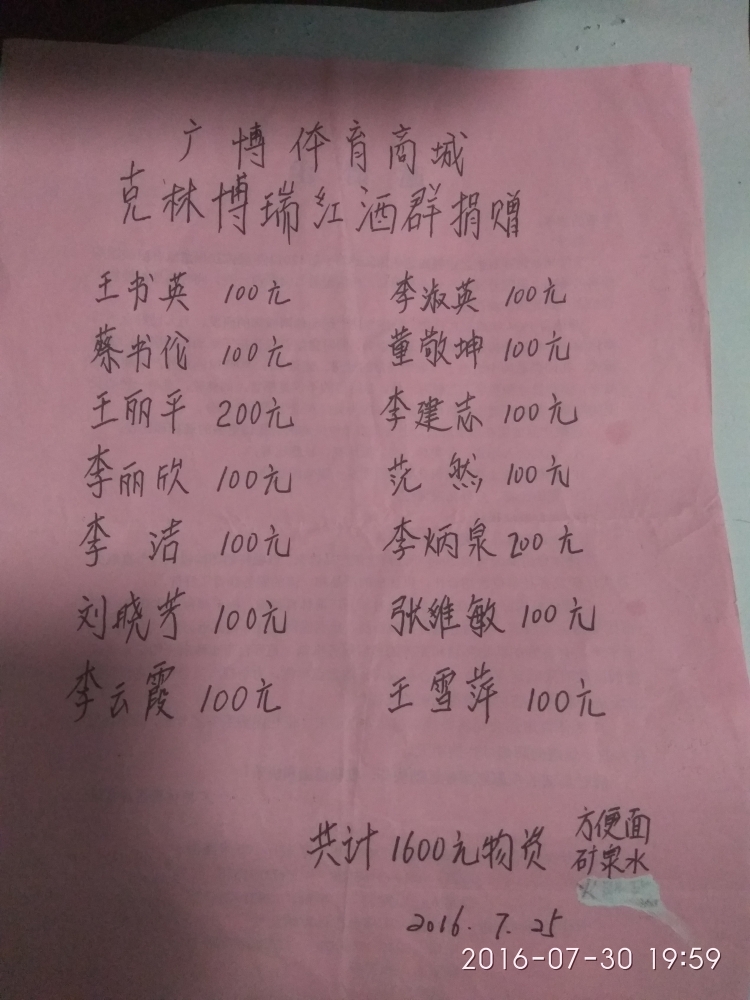 广博体育商城
克林博瑞红酒群捐赠
王书英 100元 李淑英 100元
蔡书伦 100元 董敬坤 100元
王丽平 200元 李建志 100元
李丽欣 100元 范然 100元
李洁 100元 李炳泉 200元
刘晓芳 100元 张维敏 100元
李云霞 100元 王雪萍 100元
共计1600元物资 方便面
矿泉水
火
2016.7.25
2016-07-30 19:59